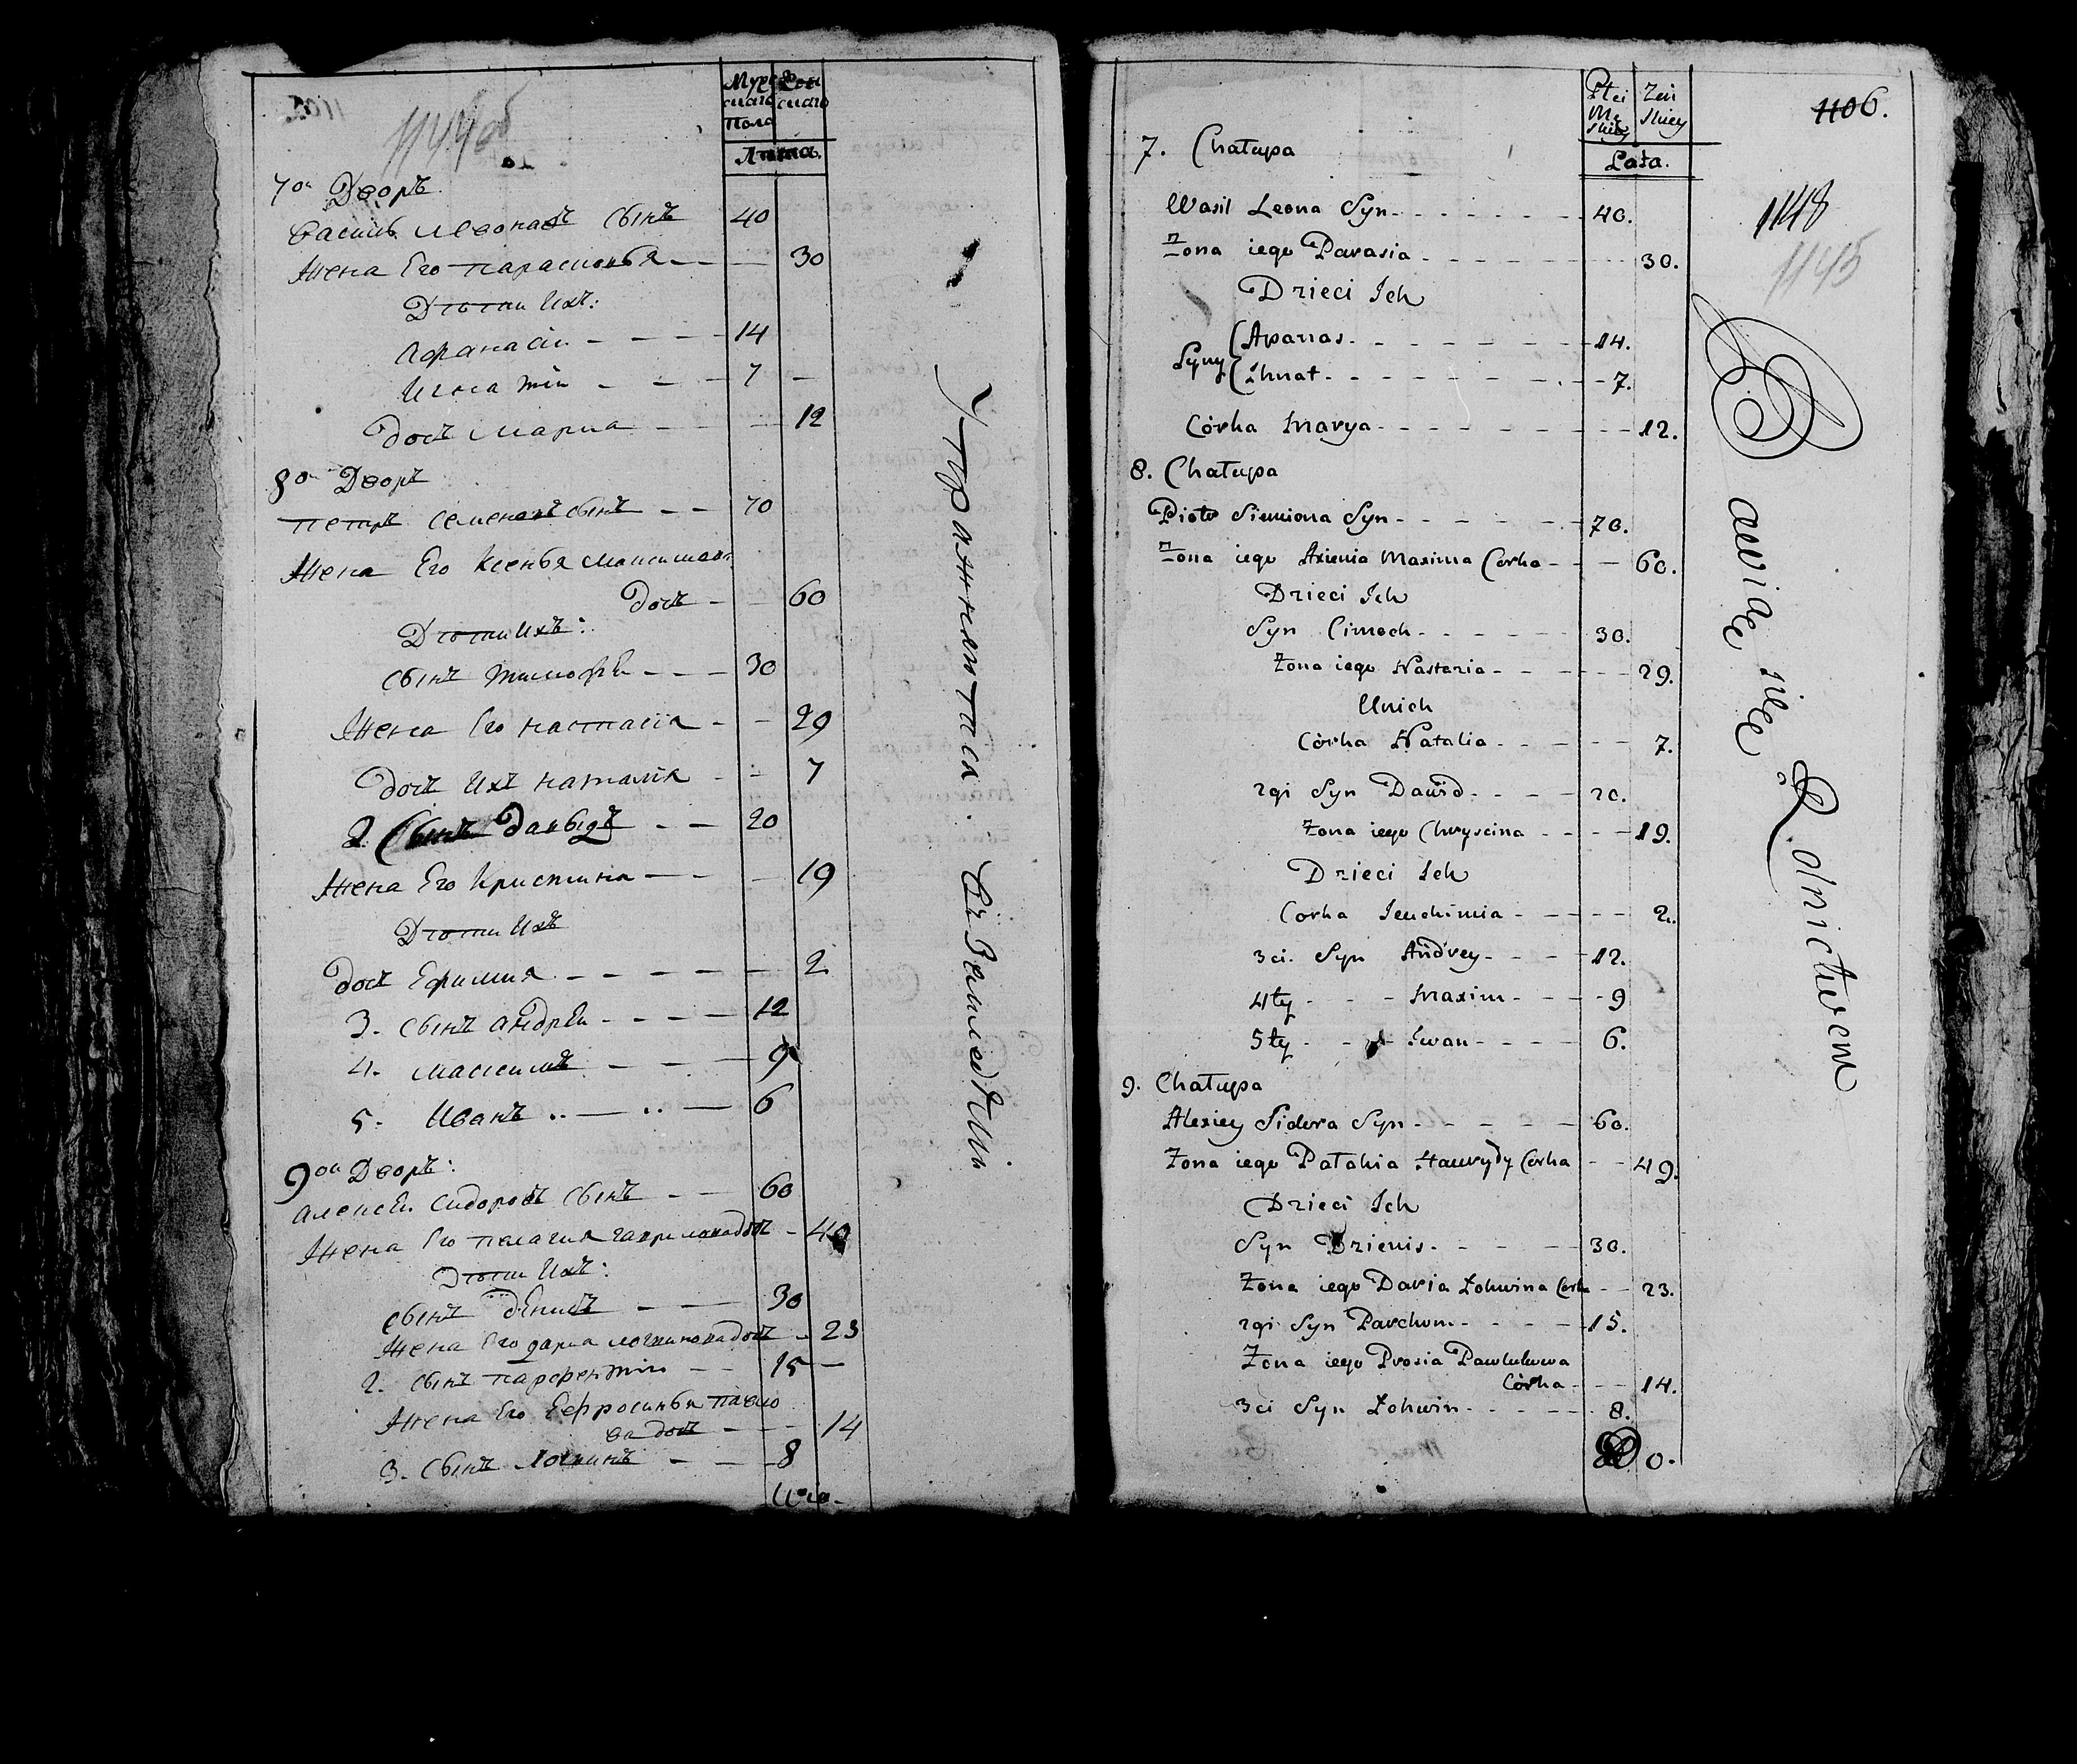 Мужескаго Пола
Женскаго
Лѣта.
7ой Дворъ
Василь Леоновъ сынъ 40
Жена Его парасковья 30
Дѣти Ихъ:
Афанасiй 14
Игнатiй 7
дочь Марья 12
8ой Дворъ
петръ семеновъ сынъ 70
Жена Его Ксенья Максимова
дочь 60
Дѣти Ихъ:
сынъ тимофѣй 30
Жена Его настасiя 29
дочь Ихъ наталiя 7
2. Сынъ давыдъ 20
Жена Его Кристина 19
Дѣти Ихъ
дочь Ефимия 2
3. сынъ андрѣй 12
4. Максимъ 9
5. Иванъ 6
9ой Дворъ:
алексѣй сидоровъ сынъ 60
Жена Его пелагия гаврилова дочь 49
Дѣти Ихъ:
сынъ дѣнисъ 30
Жена Его дарья логвинова дочь 23
2. сынъ парфентiй 15
Жена Его Ефросинья павло
ва дочь 14
3. сынъ Логвинъ 8
Упражняются. Въ Земледѣлiи
Płci Męskiey
Żeńskiey
Lata.
1106.
1148
1145
7. Chałupa
Wasil Leona Syn 40.
Żona iego Parasia 30.
Dzieci Ich
Syny Apanas 14.
Ihnat 7.
Córka Marya 12.
8. Chałupa
Piotr Siemiona Syn 70.
Żona iego Axienia Maxima Corka 60.
Dzieci Ich
Syn Cimoch 30.
Żona iego Nastazia 29.
U nich
Córka Natalia 7.
2gi Syn Dawid 20.
Żona iego Chryscina 19.
Dzieci Ich
Corka Jeuchimia 2.
3ci. Syn Andrey 12.
4ty Maxim 9
5ty Iwan 6.
9. Chałupa
Alexiey Sidora Syn 60.
Żona iego Patahia Hawryły Corka 49.
Dzieci Ich
Syn Dzienis 30.
Żona iego Daria Łohwina Corka 23.
2gi Syn Parchom 15.
Żona iego Prosia Pawlukowa
Córka 14.
3ci Syn Łohwin 8.
0.
Bawią się Rolnictwem